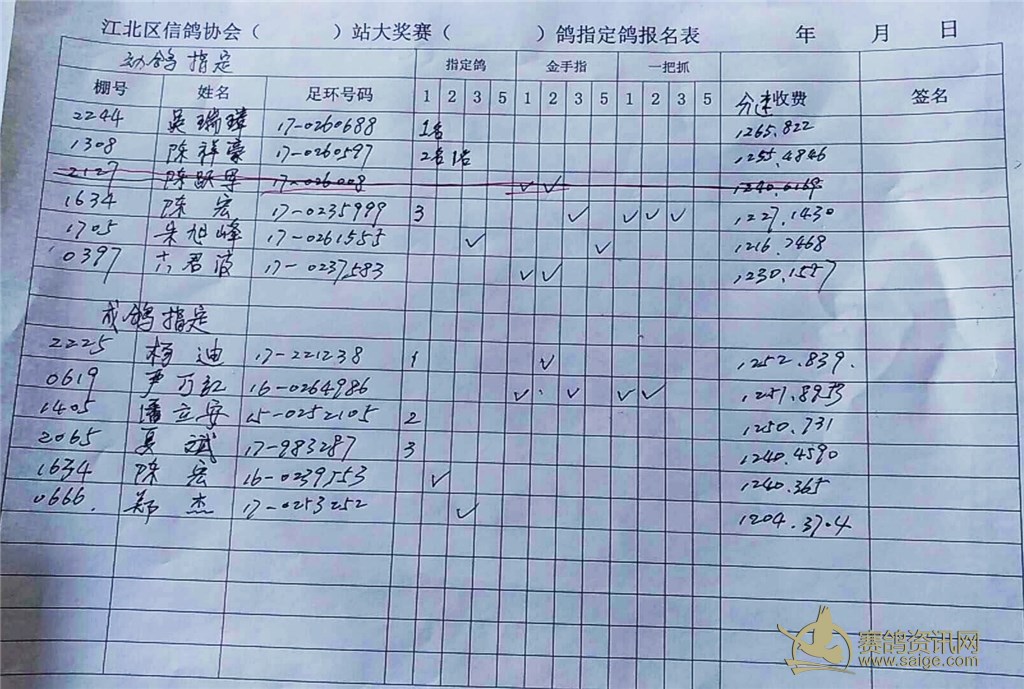 江北区信鸽协会( )站大奖赛( )鸽指定鸽报名表 年 月 日
幼鸽指定 指定鸽 金手指 一把抓
棚号 姓名 足环号码 1 2 3 5 1 2 3 5 1 2 3 5 分速收费 签名
2244 吴瑞璋 17-0260688 1名 1265.822
1308 陈祥豪 17-0260597 2名 1255.4846
2127 陈跃军 17-026008 ✓ ✓ 1240.0169
1634 陈宏 17-0235999 3 ✓ ✓ ✓ ✓ 1227.1430
1705 朱旭峰 17-0261555 ✓ ✓ 1216.7468
0397 君波 17-0237583 ✓ ✓ 1230.1557
成鸽指定
2225 杨迪 17-221238 1 ✓ 1252.839
0619 尹万红 16-0264986 ✓ ✓ ✓ ✓ 1251.8953
1405 潘立安 15-0252105 2 1250.731
2065 夏斌 17-983287 3 1240.4590
1634 陈宏 16-0239553 ✓ 1240.365
0666. 郑杰 17-0253252 ✓ 1204.3704
赛鸽资讯网
www.saige.com